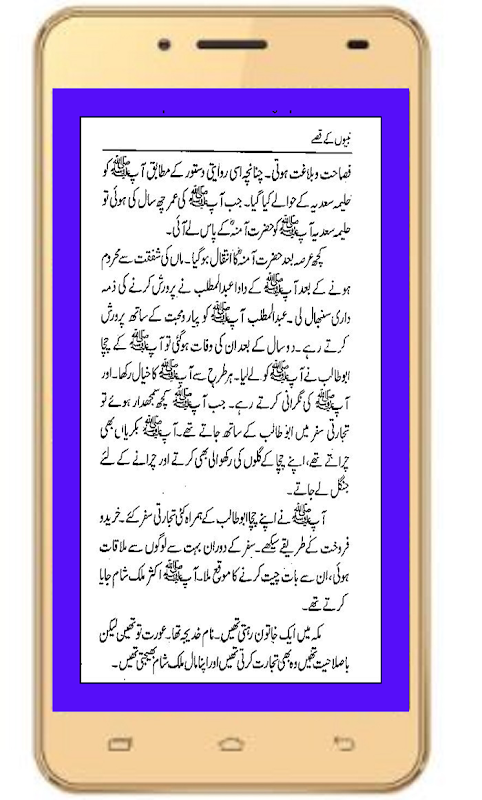 نبیوں کے قصے
فصاحت و بلاغت ہوتی۔ چنانچہ اسی روایتی دستور کے مطابق آپ ﷺ کو
حلیمہ سعدیہ کے حوالے کیا گیا۔ جب آپ ﷺ کی عمر چھ سال کی ہوئی تو
حلیمہ سعدیہ آپ ﷺ کو حضرت آمنہؓ کے پاس لے آئی۔
کچھ عرصہ بعد حضرت آمنہؓ کا انتقال ہو گیا۔ ماں کی شفقت سے محروم
ہونے کے بعد آپ ﷺ کے دادا عبدالمطلب نے پرورش کرنے کی ذمہ
داری سنبھال لی۔ عبدالمطلب آپ ﷺ کو پیار و محبت کے ساتھ پرورش
کرتے رہے۔ دو سال کے بعد ان کی وفات ہو گئی تو آپ ﷺ کے چچا
ابوطالب نے آپ ﷺ کو لے لیا۔ ہر طرح سے آپ ﷺ کا خیال رکھا۔ اور
آپ ﷺ کی نگرانی کرتے رہے۔ جب آپ ﷺ کچھ سمجھدار ہوئے تو
تجارتی سفر میں ابوطالب کے ساتھ جاتے تھے۔ آپ ﷺ بکریاں بھی
چراتے تھے، اپنے چچا کے گلوں کی رکھوالی بھی کرتے اور چرانے کے لئے
جنگل لے جاتے۔
آپ ﷺ نے اپنے چچا ابوطالب کے ہمراہ کئی تجارتی سفر کئے۔ خرید و
فروخت کے طریقے سیکھے۔ سفر کے دوران بہت سے لوگوں سے ملاقات
ہوئی، ان سے بات چیت کرنے کا موقع ملا۔ آپ ﷺ اکثر ملک شام جایا
کرتے تھے۔
مکہ میں ایک خاتون رہتی تھیں۔ نام خدیجہ تھا۔ عورت تو تھیں لیکن
باصلاحیت تھیں وہ بھی تجارت کرتی تھیں اور اپنا مال ملک شام بھیجتی تھیں۔